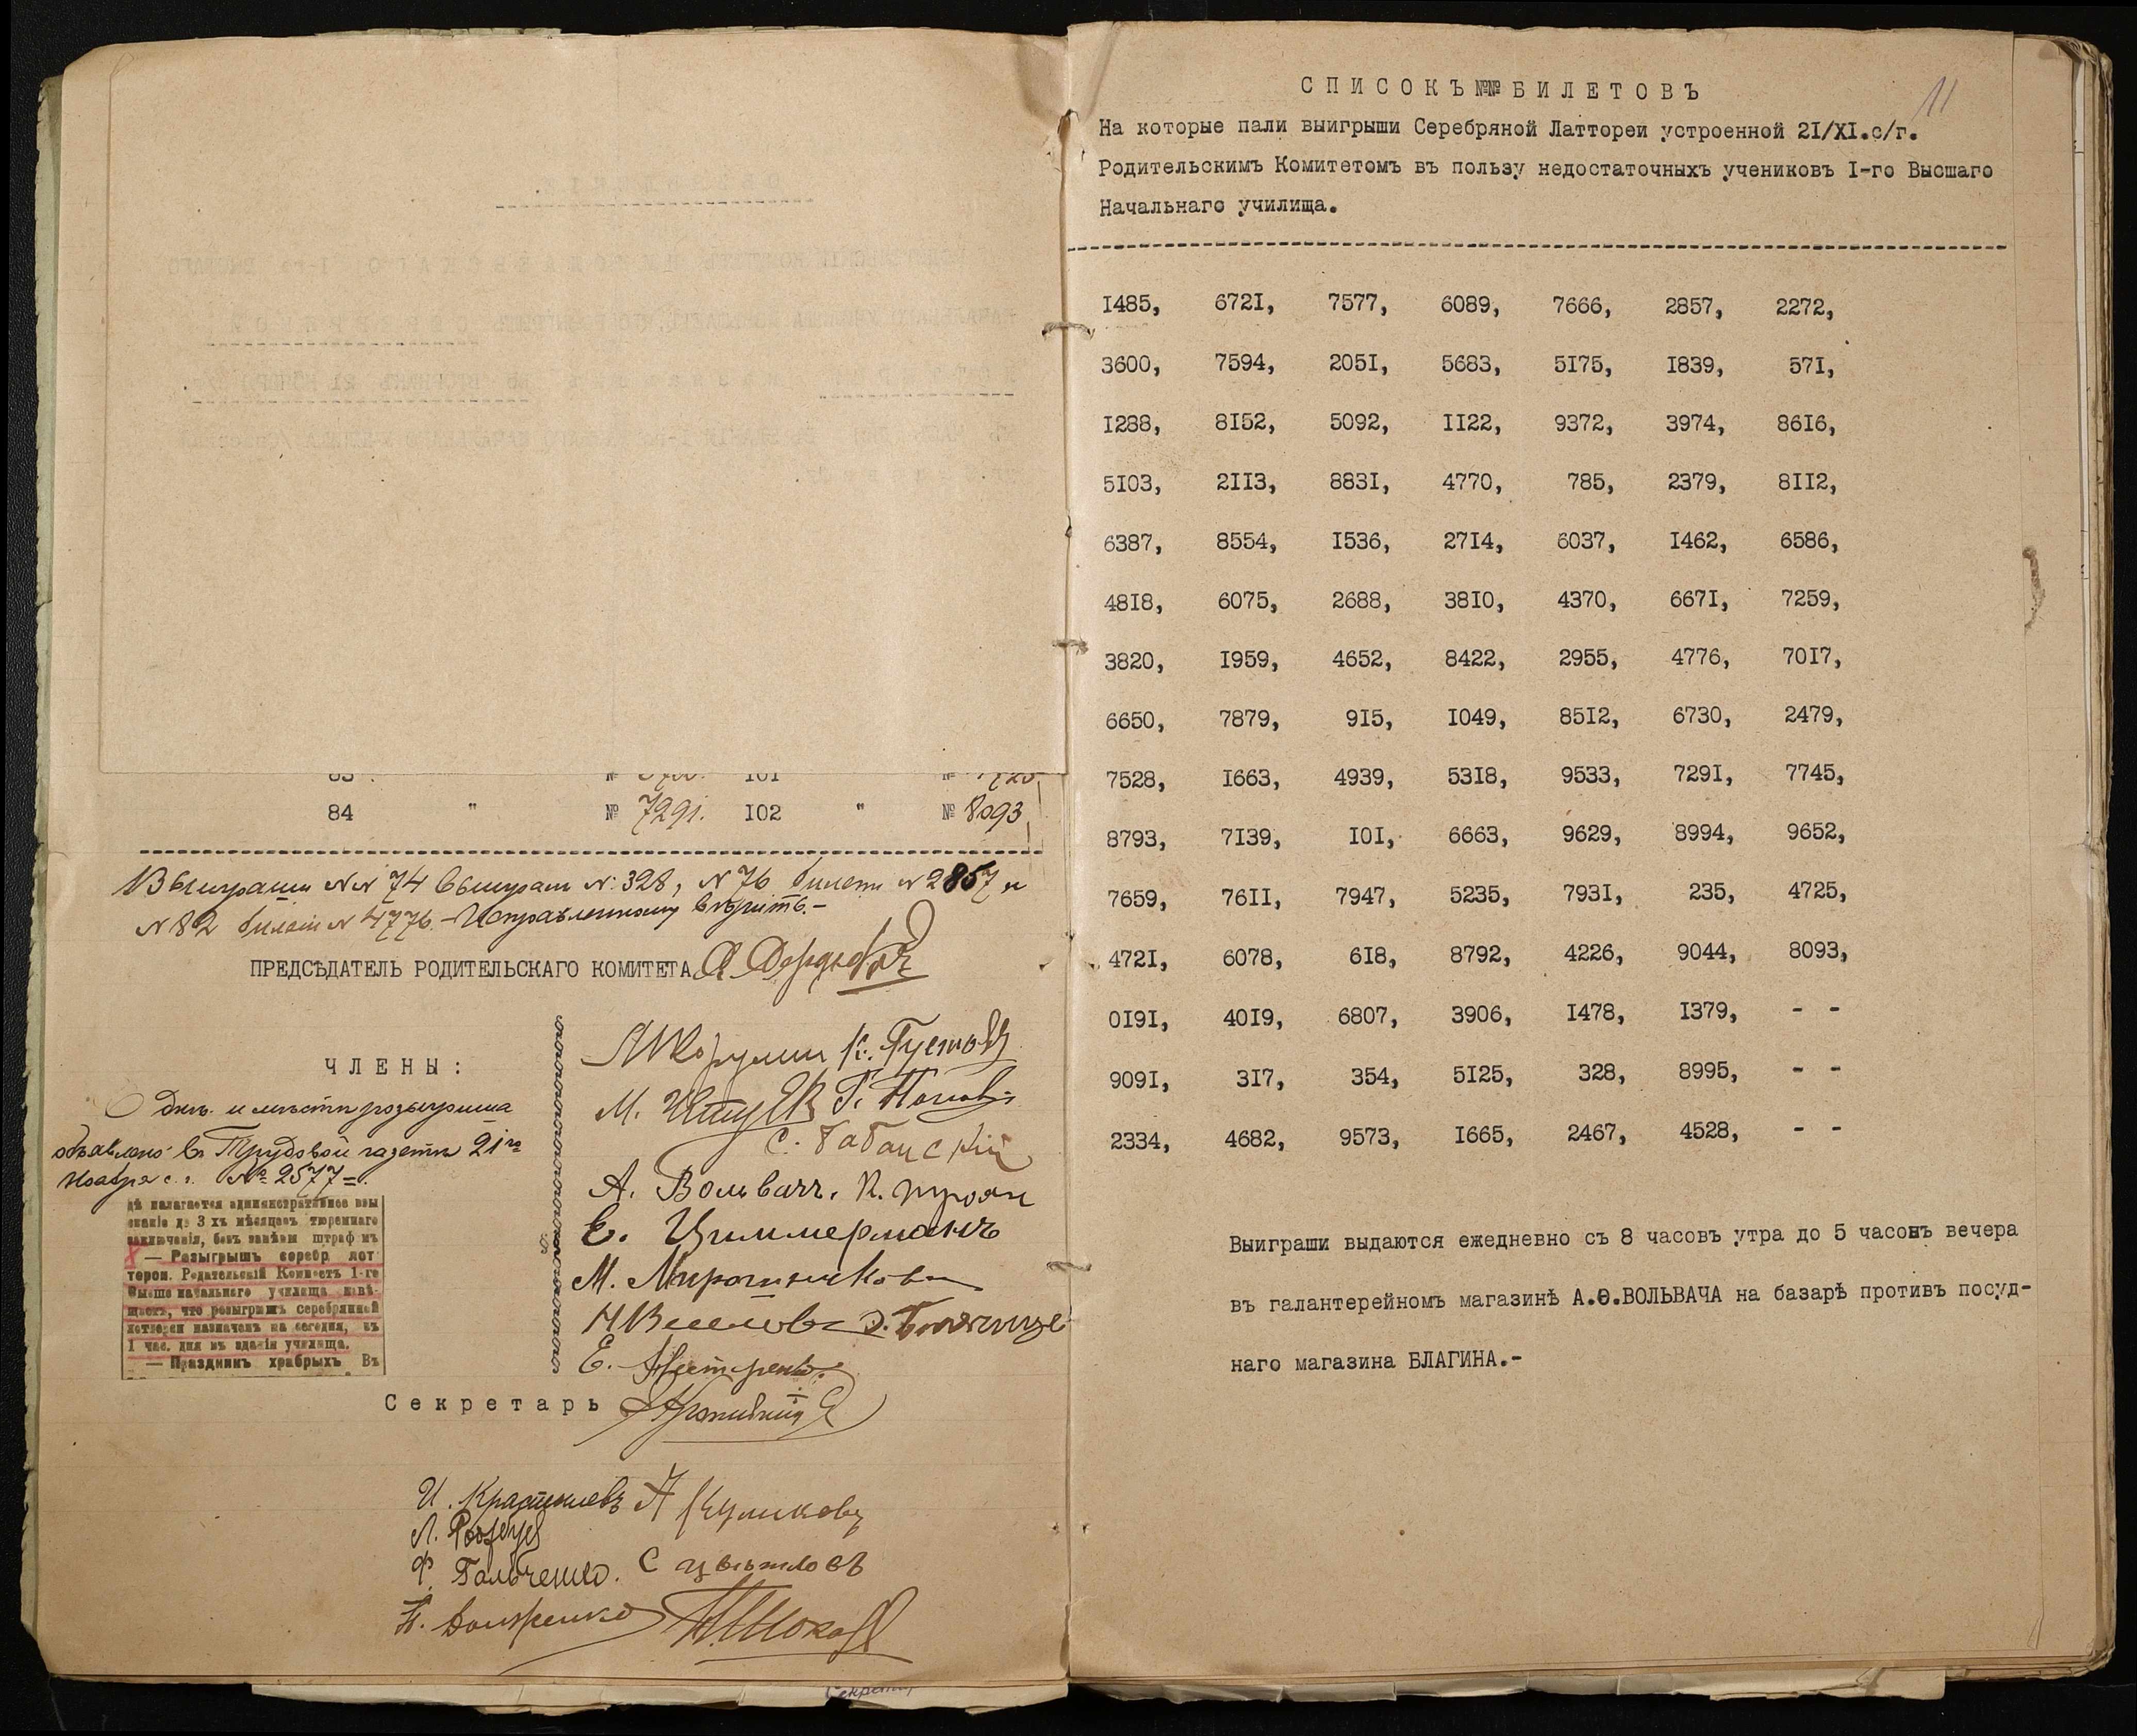 84 " № 7291. 102 " № 8093
Выиграши №№ 74 выиграл № 328, № 76 билет № 2857 и
№ 82 билет № 4776. – Исправленному верить. –
ПРЕДСѢДАТЕЛЬ РОДИТЕЛЬСКАГО КОМИТЕТА
ЧЛЕНЫ:
К. Густовъ
М. Г. Поповъ
С. Бабанскій
А. Вольвачъ. К. Троян
Е. Циммерманъ
М. Мирошников
Е.
О дне и месте розыгрыша
объявлено в Трудовой газете 21го
Ноября с. г. № 2577 =
дѣ налагается административное взы
сканіе до 3 хъ мѣсяцевъ тюремнаго
заключенія, безъ замѣны штрафомъ
— Розыгрышъ серебр. лот
тереи. Родительскій Комитетъ 1-го
Высше начальнаго училища извѣ-
щаетъ, что розыгрышъ серебрянной
лоттереи назначенъ на сегодня, въ
1 час. дня въ зданіи училища.
— Праздникъ храбрыхъ Въ
Секретарь
И. А Куликовъ
Л.
Ф. С Цвѣтловъ
11
СПИСОКЪ №№ БИЛЕТОВЪ
На которые пали выигрыши Серебряной Латтореи устроенной 2I/XI.с/г.
Родительскимъ Комитетомъ въ пользу недостаточныхъ учениковъ I-го Высшаго
Начальнаго училища.
I485, 672I, 7577, 6089, 7666, 2857, 2272,
3600, 7594, 205I, 5683, 5I75, I839, 57I,
I288, 8I52, 5092, II22, 9372, 3974, 86I6,
5I03, 2II3, 883I, 4770, 785, 2379, 8II2,
6387, 8554, I536, 27I4, 6037, I462, 6586,
48I8, 6075, 2688, 38I0, 4370, 667I, 7259,
3820, I959, 4652, 8422, 2955, 4776, 70I7,
6650, 7879, 9I5, I049, 85I2, 6730, 2479,
7528, I663, 4939, 53I8, 9533, 729I, 7745,
8793, 7I39, I0I, 6663, 9629, 8994, 9652,
7659, 76II, 7947, 5235, 793I, 235, 4725,
472I, 6078, 6I8, 8792, 4226, 9044, 8093,
0I9I, 40I9, 6807, 3906, I478, I379, - -
909I, 3I7, 354, 5I25, 328, 8995, - -
2334, 4682, 9573, I665, 2467, 4528, - -
Выиграши выдаются ежедневно съ 8 часовъ утра до 5 часовъ вечера
въ галантерейномъ магазинѣ А.Ѳ.ВОЛЬВАЧА на базарѣ противъ посуд-
наго магазина БЛАГИНА.-